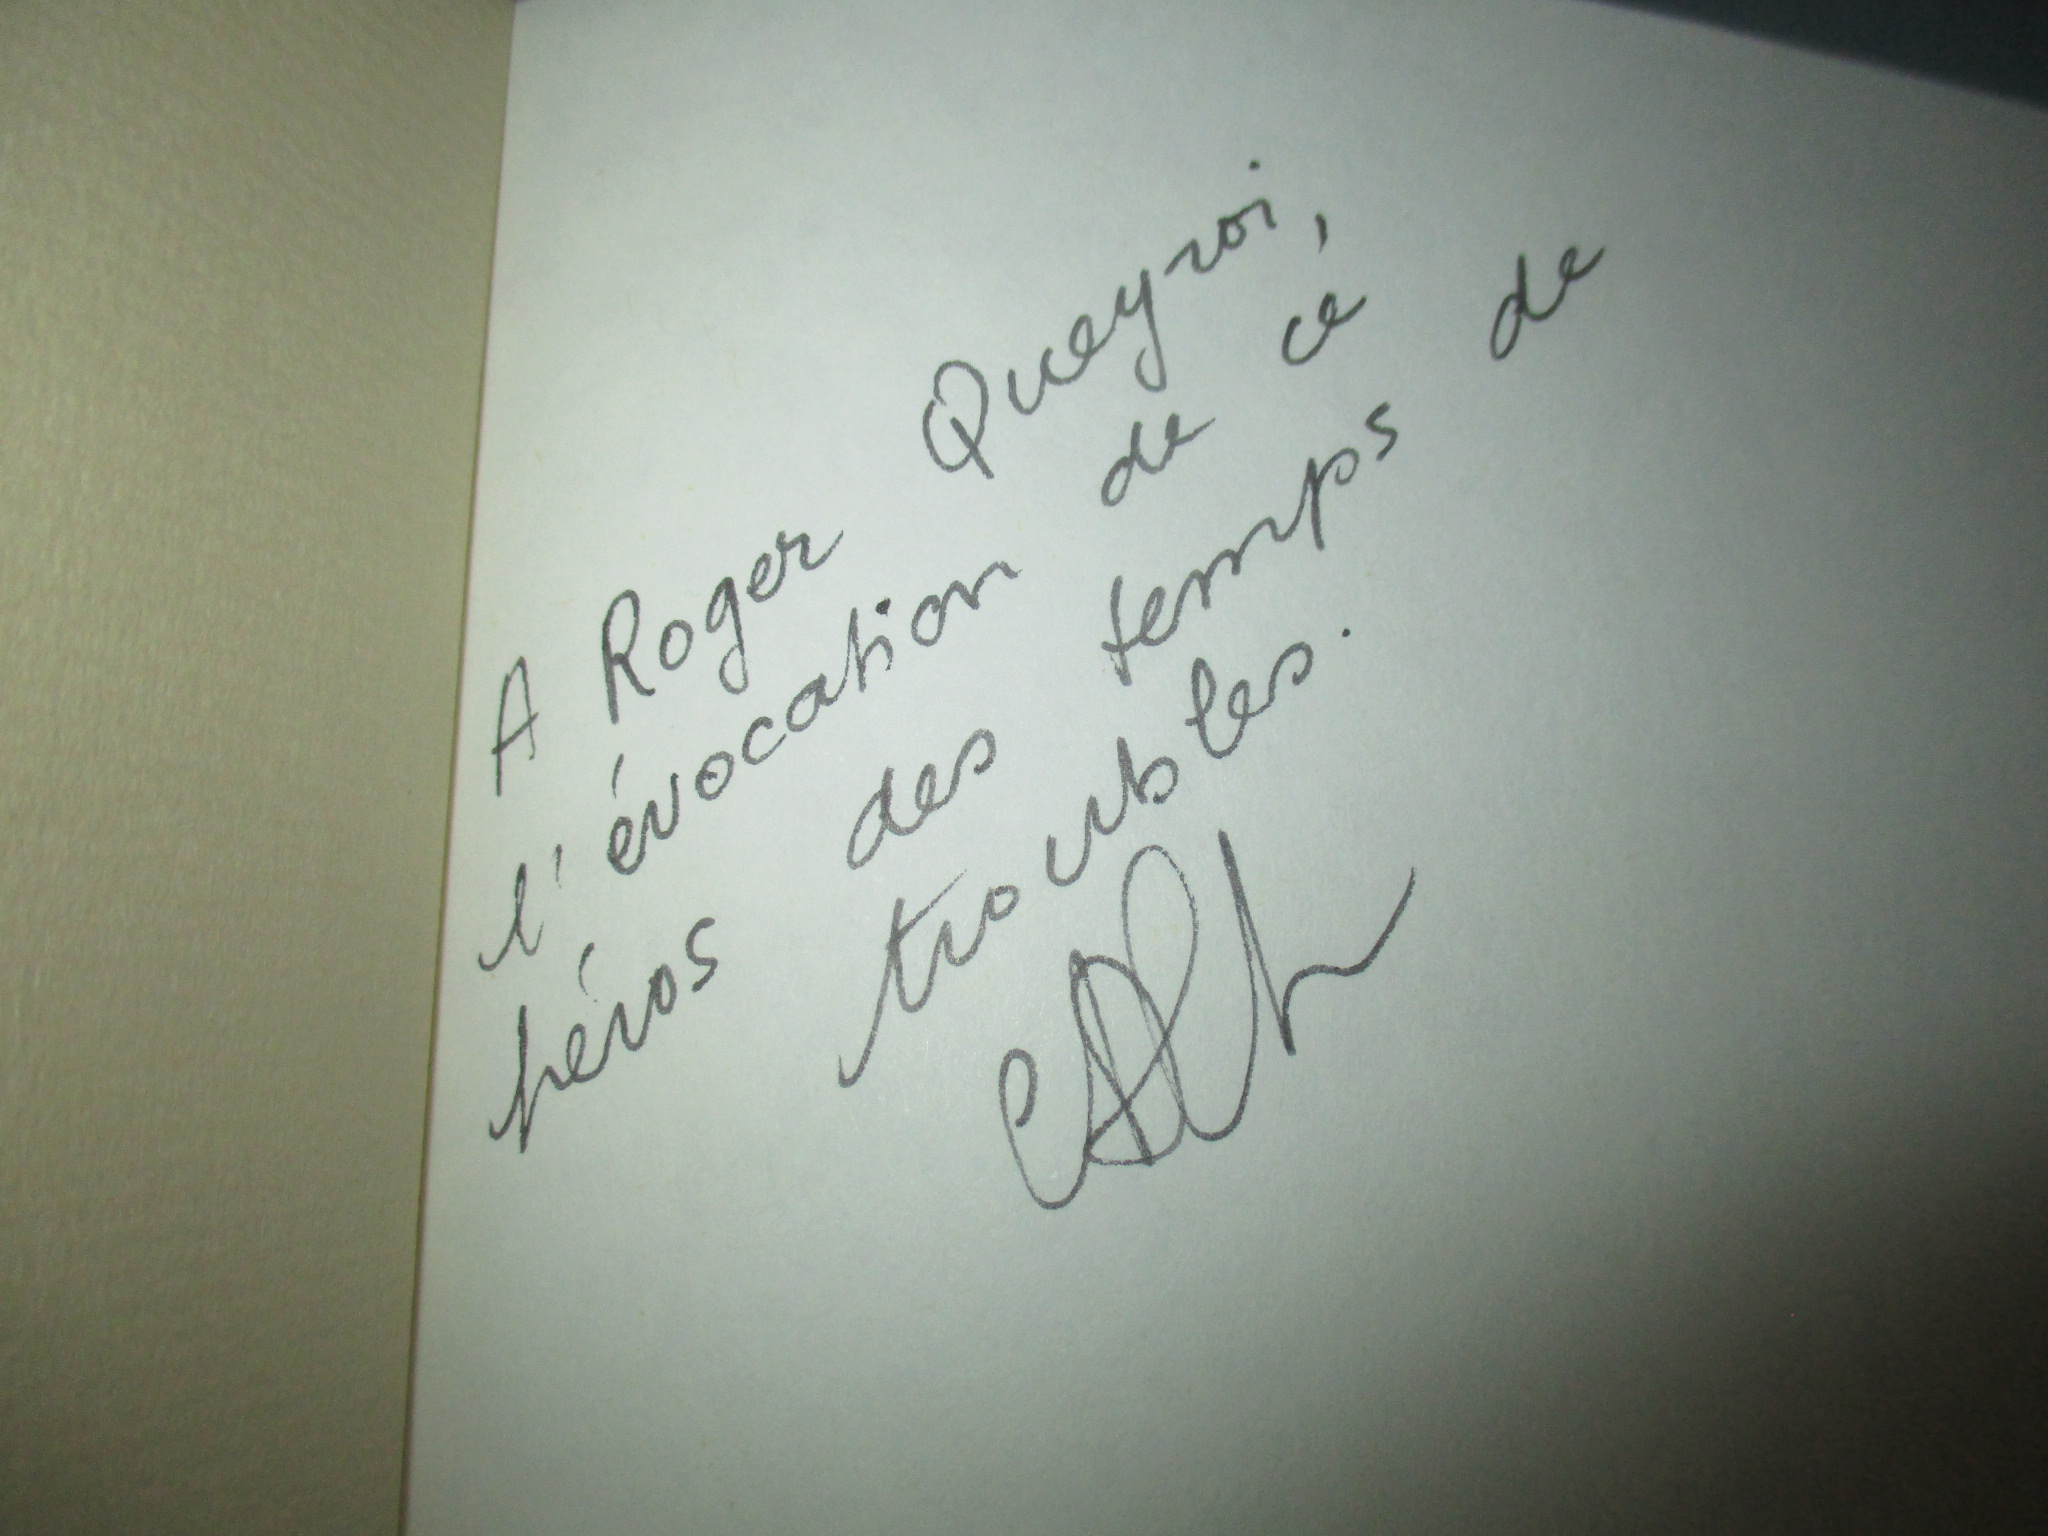 A Roger Queyroi,
l'évocation de ce
héros des temps de
troubles.